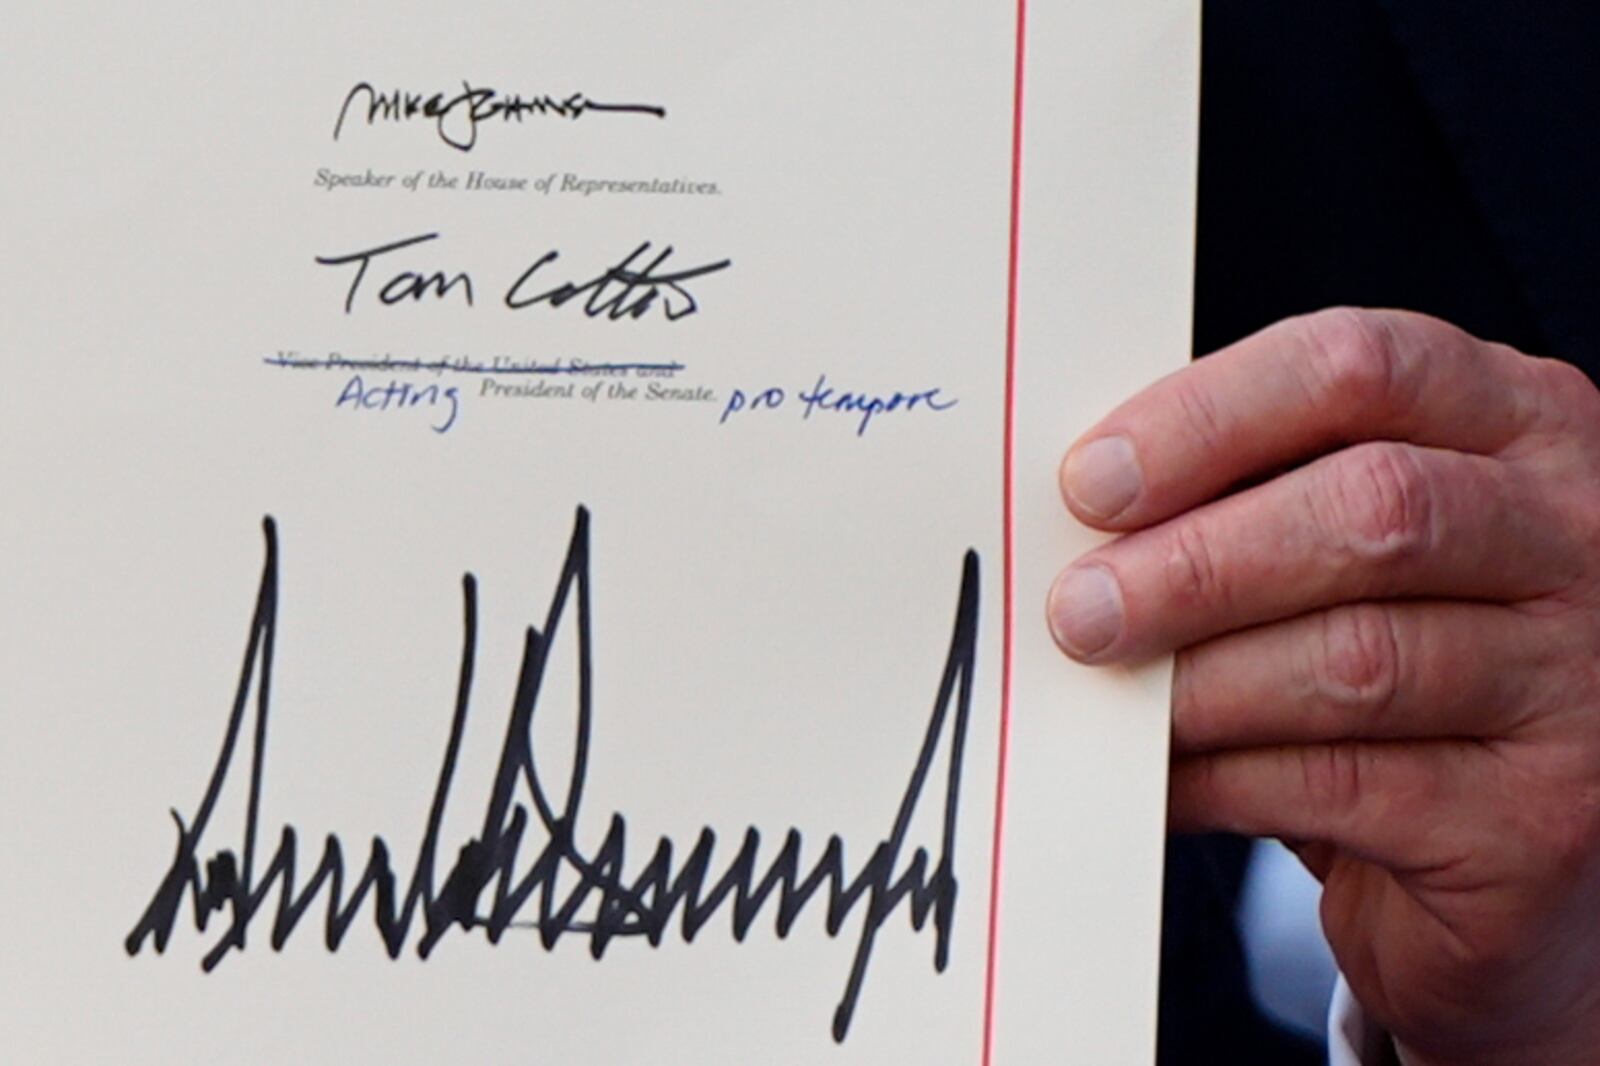 Mike Johnson
Speaker of the House of Representatives.
Tom Cotton
Vice President of the United States and
Acting President of the Senate. pro tempore